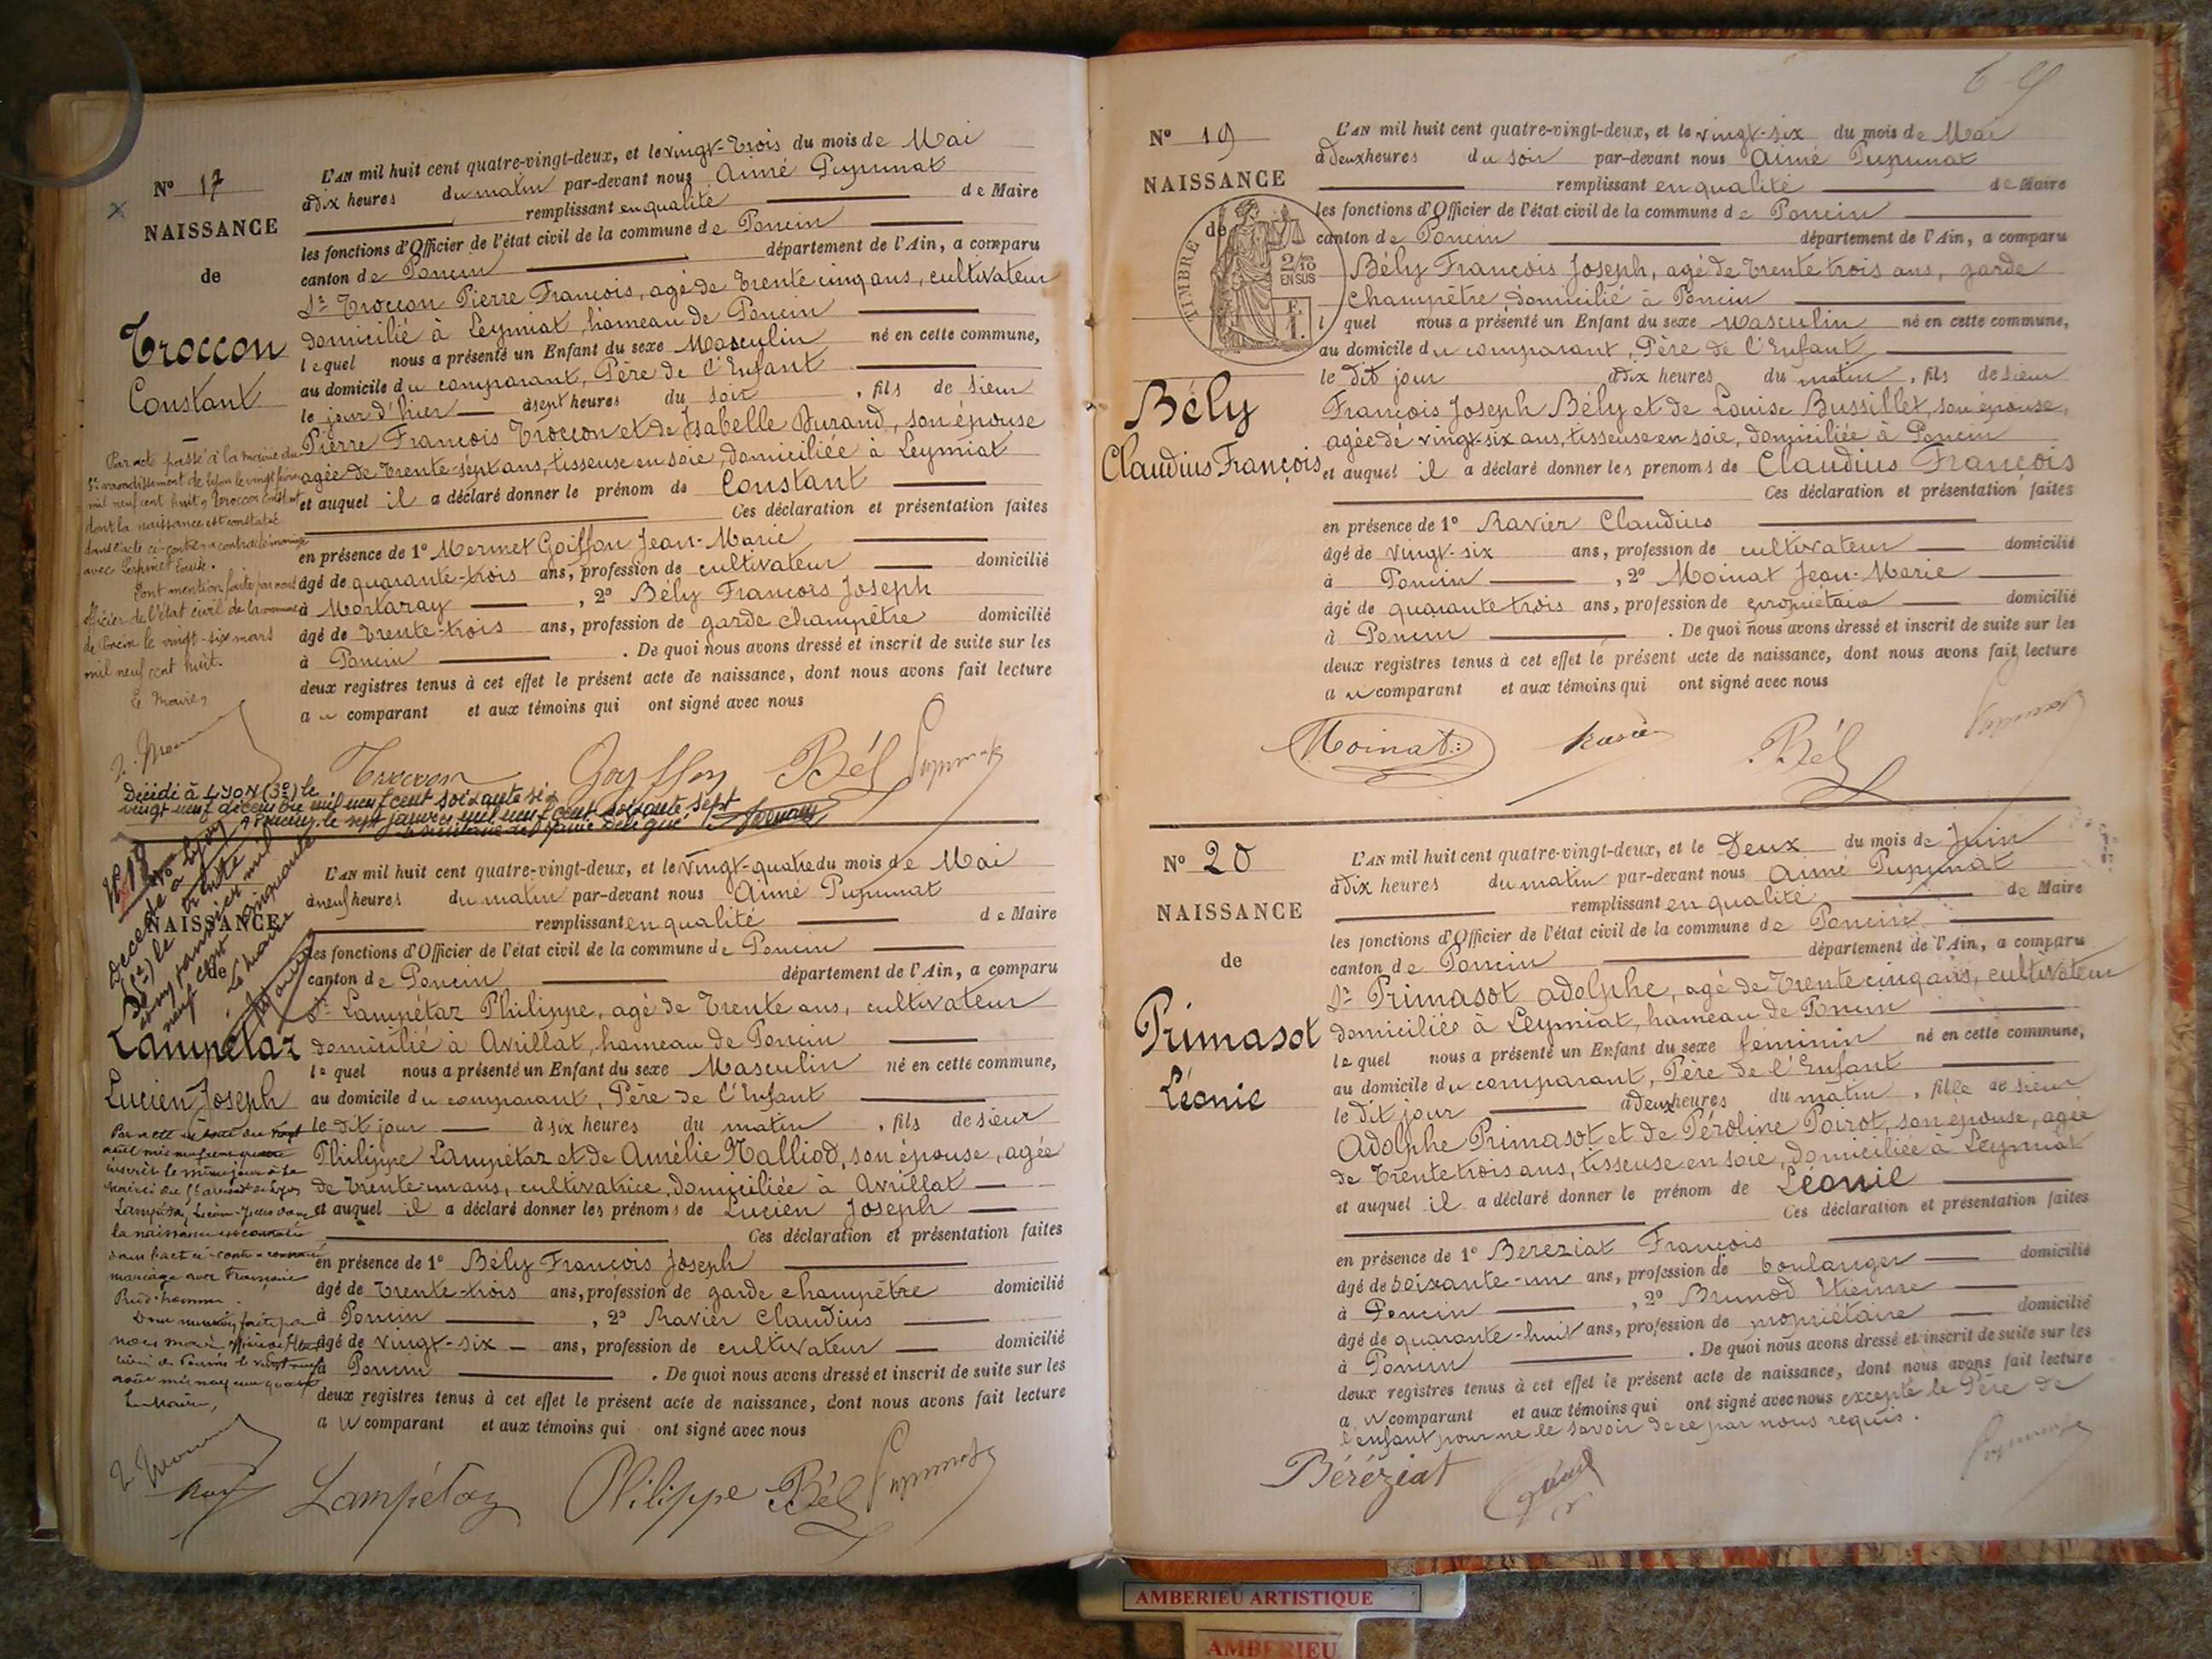 Nº 17
NAISSANCE
de
Troccon
Constant
L'AN mil huit cent quatre-vingt-deux, et le vingt-trois du mois de Mai
à dix heures du matin par-devant nous Aimé Pupunat
remplissant en qualité de Maire
les fonctions d'Officier de l'état civil de la commune de Poncin
canton de Poncin département de l'Ain, a comparu
Sr Troccon Pierre François, agé de trente cinq ans, cultivateur
domicilié à Leymiat, hameau de Poncin
lequel nous a présenté un Enfant du sexe Masculin né en cette commune,
au domicile du comparant, Père de l'Enfant
le jour d'hier à sept heures du soir, fils de sieur
Pierre François Troccon et de Isabelle Durand, son épouse
agée de trente-sept ans, tisseuse en soie, domiciliée à Leymiat
et auquel il a déclaré donner le prénom de Constant
Ces déclaration et présentation faites
en présence de 1º Mermet Goiffon Jean-Marie
âgé de quarante-trois ans, profession de cultivateur domicilié
à Mortaray, 2º Bély François Joseph
âgé de trente-trois ans, profession de garde champêtre domicilié
à Poncin. De quoi nous avons dressé et inscrit de suite sur les
deux registres tenus à cet effet le présent acte de naissance, dont nous avons fait lecture
au comparant et aux témoins qui ont signé avec nous
Par acte passé à la mairie du
5e arrondissement de Lyon le vingt février
mil neuf cent huit, Troccon Constant
dont la naissance est constatée
dans l'acte ci-contre a contracté mariage
avec
Dont mention faite par nous
officier de l'état civil de la commune
de Poncin le vingt-six mars
mil neuf cent huit.
Le Maire,
Troccon Goyffon Bély Pupunat
Décédé à LYON (3e) le
vingt neuf décembre mil neuf cent soixante six
A PONCIN, le sept janvier mil neuf cent soixante sept
Nº 18
NAISSANCE
de
Lampétaz
Lucien Joseph
Décédé à Lyon
le trente
janvier mil
neuf cent cinquante
Le Maire
L'AN mil huit cent quatre-vingt-deux, et le vingt-quatre du mois de Mai
à neuf heures du matin par-devant nous Aimé Pupunat
remplissant en qualité de Maire
les fonctions d'Officier de l'état civil de la commune de Poncin
canton de Poncin département de l'Ain, a comparu
Sr Lampétaz Philippe, agé de trente ans, cultivateur
domicilié à Avrillat, hameau de Poncin
lequel nous a présenté un Enfant du sexe Masculin né en cette commune,
au domicile du comparant, Père de l'Enfant
le dit jour à six heures du matin, fils de sieur
Philippe Lampétaz et de Amélie Malliod, son épouse, agée
de trente-un ans, cultivatrice, domiciliée à Avrillat
et auquel il a déclaré donner les prénoms de Lucien Joseph
Ces déclaration et présentation faites
en présence de 1º Bély François Joseph
âgé de trente-trois ans, profession de garde champêtre domicilié
à Poncin, 2º Ravier Claudius
âgé de vingt-six ans, profession de cultivateur domicilié
à Poncin. De quoi nous avons dressé et inscrit de suite sur les
deux registres tenus à cet effet le présent acte de naissance, dont nous avons fait lecture
au comparant et aux témoins qui ont signé avec nous
la naissance est constatée
dans l'acte ci-contre a contracté
mariage avec Françoise
Prud'homme.
Le Maire,
Lampétaz Philippe Bély Pupunat
Nº 19
NAISSANCE
de
TIMBRE
2/10
EN SUS
Bély
Claudius François
L'AN mil huit cent quatre-vingt-deux, et le vingt-six du mois de Mai
à deux heures du soir par-devant nous Aimé Pupunat
remplissant en qualité de Maire
les fonctions d'Officier de l'état civil de la commune de Poncin
canton de Poncin département de l'Ain, a comparu
Bély François Joseph, agé de trente trois ans, garde
champêtre domicilié à Poncin
lequel nous a présenté un Enfant du sexe Masculin né en cette commune,
au domicile du comparant, Père de l'Enfant
le dit jour à dix heures du matin, fils de sieur
François Joseph Bély et de Louise Bussillet, son épouse,
agée de vingt-six ans, tisseuse en soie, domiciliée à Poncin
et auquel il a déclaré donner les prénoms de Claudius François
Ces déclaration et présentation faites
en présence de 1º Ravier Claudius
âgé de vingt-six ans, profession de cultivateur domicilié
à Poncin, 2º Moinat Jean-Marie
âgé de quarante trois ans, profession de propriétaire domicilié
à Poncin. De quoi nous avons dressé et inscrit de suite sur les
deux registres tenus à cet effet le présent acte de naissance, dont nous avons fait lecture
au comparant et aux témoins qui ont signé avec nous
Moinat Ravier Bély Pupunat
Nº 20
NAISSANCE
de
Primasot
Léonie
L'AN mil huit cent quatre-vingt-deux, et le Deux du mois de Juin
à dix heures du matin par-devant nous Aimé Pupunat
remplissant en qualité de Maire
les fonctions d'Officier de l'état civil de la commune de Poncin
canton de Poncin département de l'Ain, a comparu
Sr Primasot Adolphe, agé de trente cinq ans, cultivateur
domicilié à Leymiat, hameau de Poncin
lequel nous a présenté un Enfant du sexe féminin né en cette commune,
au domicile du comparant, Père de l'Enfant
le dit jour à deux heures du matin, fille de sieur
Adolphe Primasot et de Péroline Poirot, son épouse, agée
de trente trois ans, tisseuse en soie, domiciliée à Leymiat
et auquel il a déclaré donner le prénom de Léonie
Ces déclaration et présentation faites
en présence de 1º Béréziat François
âgé de soixante-un ans, profession de boulanger domicilié
à Poncin, 2º Brunod Etienne
âgé de quarante-huit ans, profession de propriétaire domicilié
à Poncin. De quoi nous avons dressé et inscrit de suite sur les
deux registres tenus à cet effet le présent acte de naissance, dont nous avons fait lecture
au comparant et aux témoins qui ont signé avec nous excepté le Père de
l'enfant pour ne le savoir de ce par nous requis.
Béréziat Pupunat
AMBERIEU ARTISTIQUE
AMBERIEU